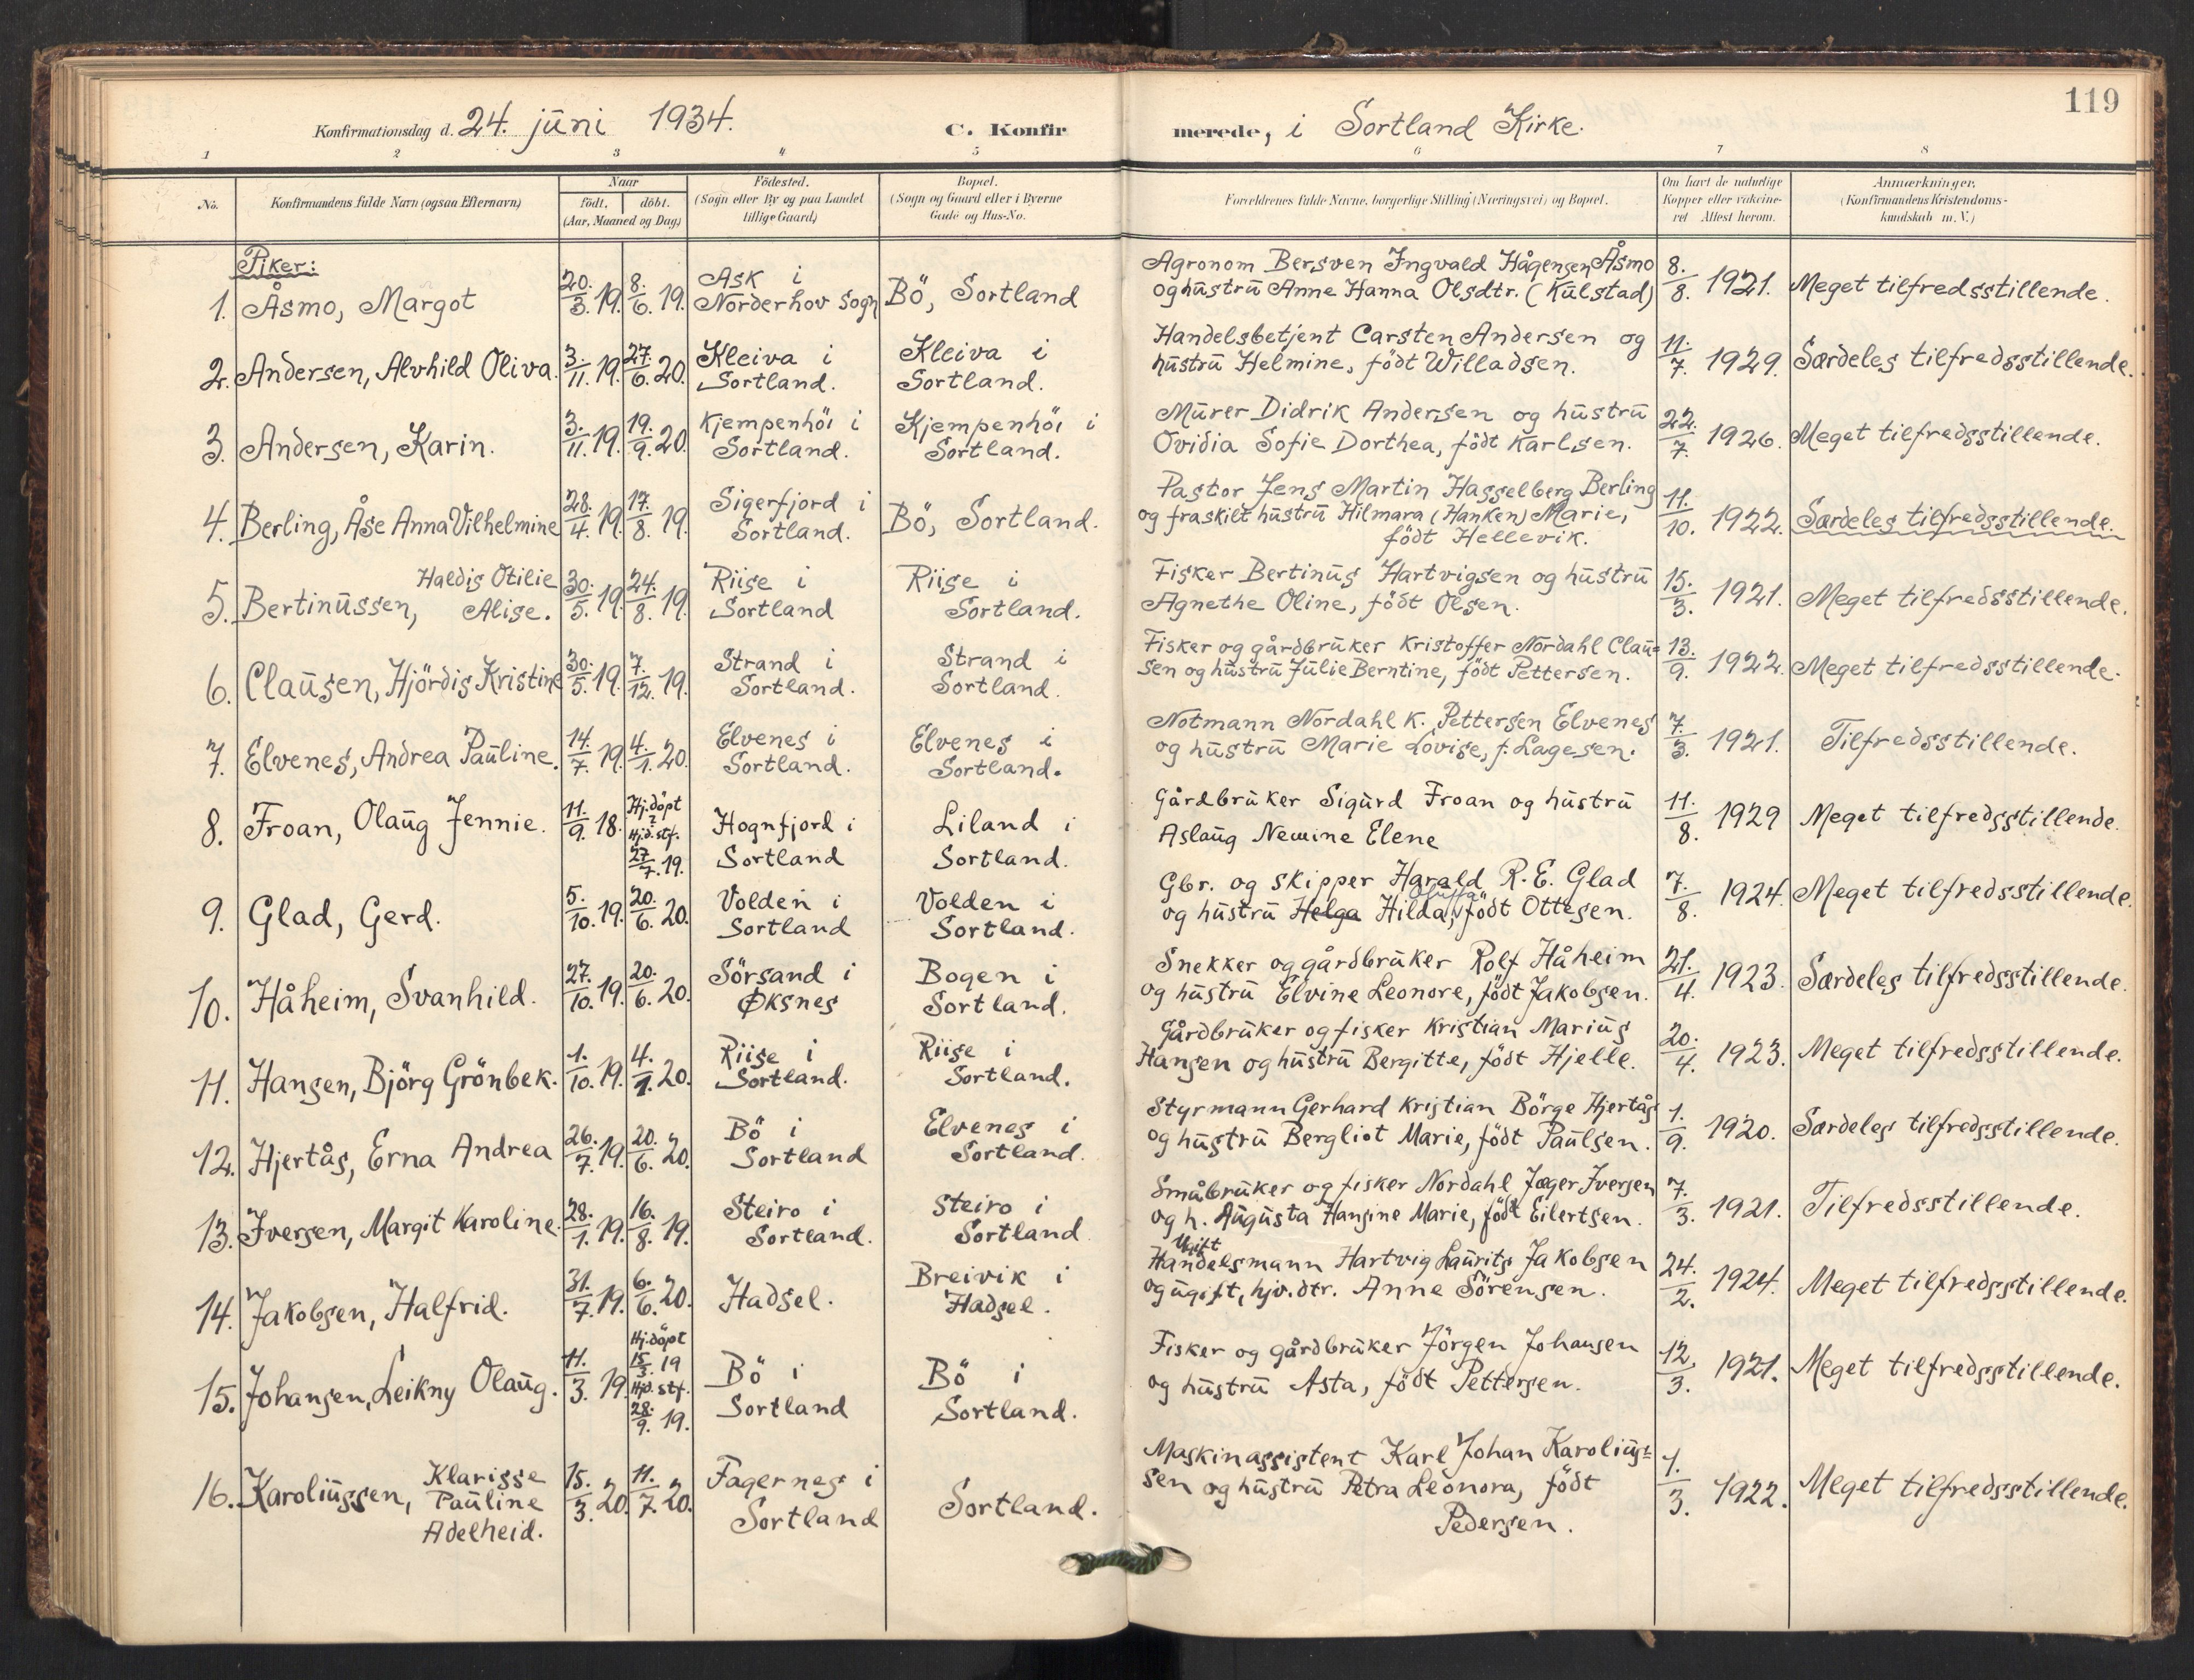 119
Konfirmationsdag d. 24. juni 1934. C. Konfirmerede, i Sortland Kirke.
1 2 3 4 5 6 7 8
No. Konfirmandens fulde Navn (ogsaa Efternavn) Naar født, døbt. (Aar, Maaned og Dag) Födested. (Sogn eller By og paa Landet tillige Gaard) Bopæl. (Sogn og Gaard eller i Byerne Gade og Hus-No. Forældrenes fulde Navne, borgerlige Stilling (Næringsvei) og Bopæl. Om havt de naturlige Kopper eller vakcineret Attest herom. Anmærkninger. (Konfirmandens Kristendomskundskab m. V.)
Piker:
1. Åsmo, Margot 20./3. 19. 8./6. 19. Ask i Norderhov sogn Bö, Sortland Agronom Bersven Ingvald Hågensen Åsmo og hustru Anne Hanna Olsdtr. (Kulstad) 8./8. 1921. Meget tilfredsstillende.
2. Andersen, Alvhild Oliva. 3./11. 19. 27./6. 20. Kleiva i Sortland. Kleiva i Sortland. Handelsbetjent Carsten Andersen og hustru Helmine, födt Willadsen. 11./7. 1929. Særdeles tilfredsstillende.
3. Andersen, Karin. 3./11. 19. 19./9. 20. Kjempenhöi i Sortland. Kjempenhöi i Sortland. Murer Didrik Andersen og hustru Ovidia Sofie Dorthea, födt Karlsen. 22./7. 1926. Meget tilfredsstillende.
4. Berling, Åse Anna Vilhelmine 28./4. 19. 17./8. 19. Sigerfjord i Sortland. Bö, Sortland. Pastor Jens Martin Hasselberg Berling og fraskilt hustru Hilmara (Hanken) Marie, födt Hellevik. 11./10. 1922. Særdeles tilfredsstillende.
5. Bertinussen, Haldis Otilie Alise. 30./5. 19. 24./8. 19. Riise i Sortland Riise i Sortland. Fisker Bertinus Hartvigsen og hustru Agnethe Oline, födt Olsen. 15./3. 1921. Meget tilfredsstillende.
6. Clausen, Hjördis Kristine 30./5. 19. 7./12. 19. Strand i Sortland. Strand i Sortland. Fisker og gårdbruker Kristoffer Nordahl Clausen og hustru Julie Berntine, födt Pettersen. 13./9. 1922. Meget tilfredsstillende.
7. Elvenes, Andrea Pauline. 14./7. 19. 4./1. 20. Elvenes i Sortland. Elvenes i Sortland. Notmann Nordahl K. Pettersen Elvenes og hustru Marie Lovise, f. Lagesen. 7./3. 1921. Tilfredsstillende.
8. Froan, Olaug Jennie. 11./9. 18. Hj.döpt ? Hjd. stf. 27/7. 19. Hognfjord i Sortland Liland i Sortland. Gårdbruker Sigurd Froan og hustru Aslaug Nemine Elene 11./8. 1929 Meget tilfredsstillende.
9. Glad, Gerd. 5./10. 19. 20./6. 20. Volden i Sortland Volden i Sortland. Gbr. og skipper Harald R. E. Glad og hustru Helga Hilda, födt Ottesen. 7./8. 1924. Meget tilfredsstillende.
10. Håheim, Svanhild. 27./10. 19. 20./6. 20. Sörsand i Øksnes Bogen i Sortland. Snekker og gårdbruker Rolf Håheim og hustru Elvine Leonore, födt Jakobsen. 21./4. 1923. Særdeles tilfredsstillende.
11. Hansen, Björg Grönbek. 1./10. 19. 4./1. 20. Riise i Sortland. Riise i Sortland. Gårdbruker og fisker Kristian Marius Hansen og hustru Bergitte, födt Hjelle. 20./4. 1923. Meget tilfredsstillende.
12. Hjertås, Erna Andrea 26./7. 19. 20./6. 20. Bö i Sortland Elvenes i Sortland. Styrmann Gerhard Kristian Börge Hjertås og hustru Bergliot Marie, födt Paulsen. 1./9. 1920. Særdeles tilfredsstillende.
13. Iversen, Margit Karoline. 28./1. 19. 16./8. 19. Steiro i Sortland. Steiro i Sortland Småbruker og fisker Nordahl Jæger Iversen og h. Augusta Hansine Marie, födt Eilertsen. 7./3. 1921. Tilfredsstillende.
14. Jakobsen, Halfrid. 31./7. 19. 6./6. 20. Hadsel. Breivik i Hadsel. Ugift Handelsmann Hartvig Laurits Jakobsen og ugift, hjv. dtr. Anne Sörensen. 24./2. 1924. Meget tilfredsstillende.
15. Johansen, Leikny Olaug. 11./3. 19. Hj.döpt 15/3. 19 Hjd. stf. 28./9. 19. Bö i Sortland Bö i Sortland. Fisker og gårdbruker Jörgen Johansen og hustru Asta, födt Pettersen. 12./3. 1921. Meget tilfredsstillende.
16. Karoliussen, Klarisse Pauline Adelheid. 15./3. 20. 11./7. 20. Fagernes i Sortland Sortland. Maskinassistent Karl Johan Karoliussen og hustru Petra Leonora, födt Pedersen. 1./3. 1922. Meget tilfredsstillende.